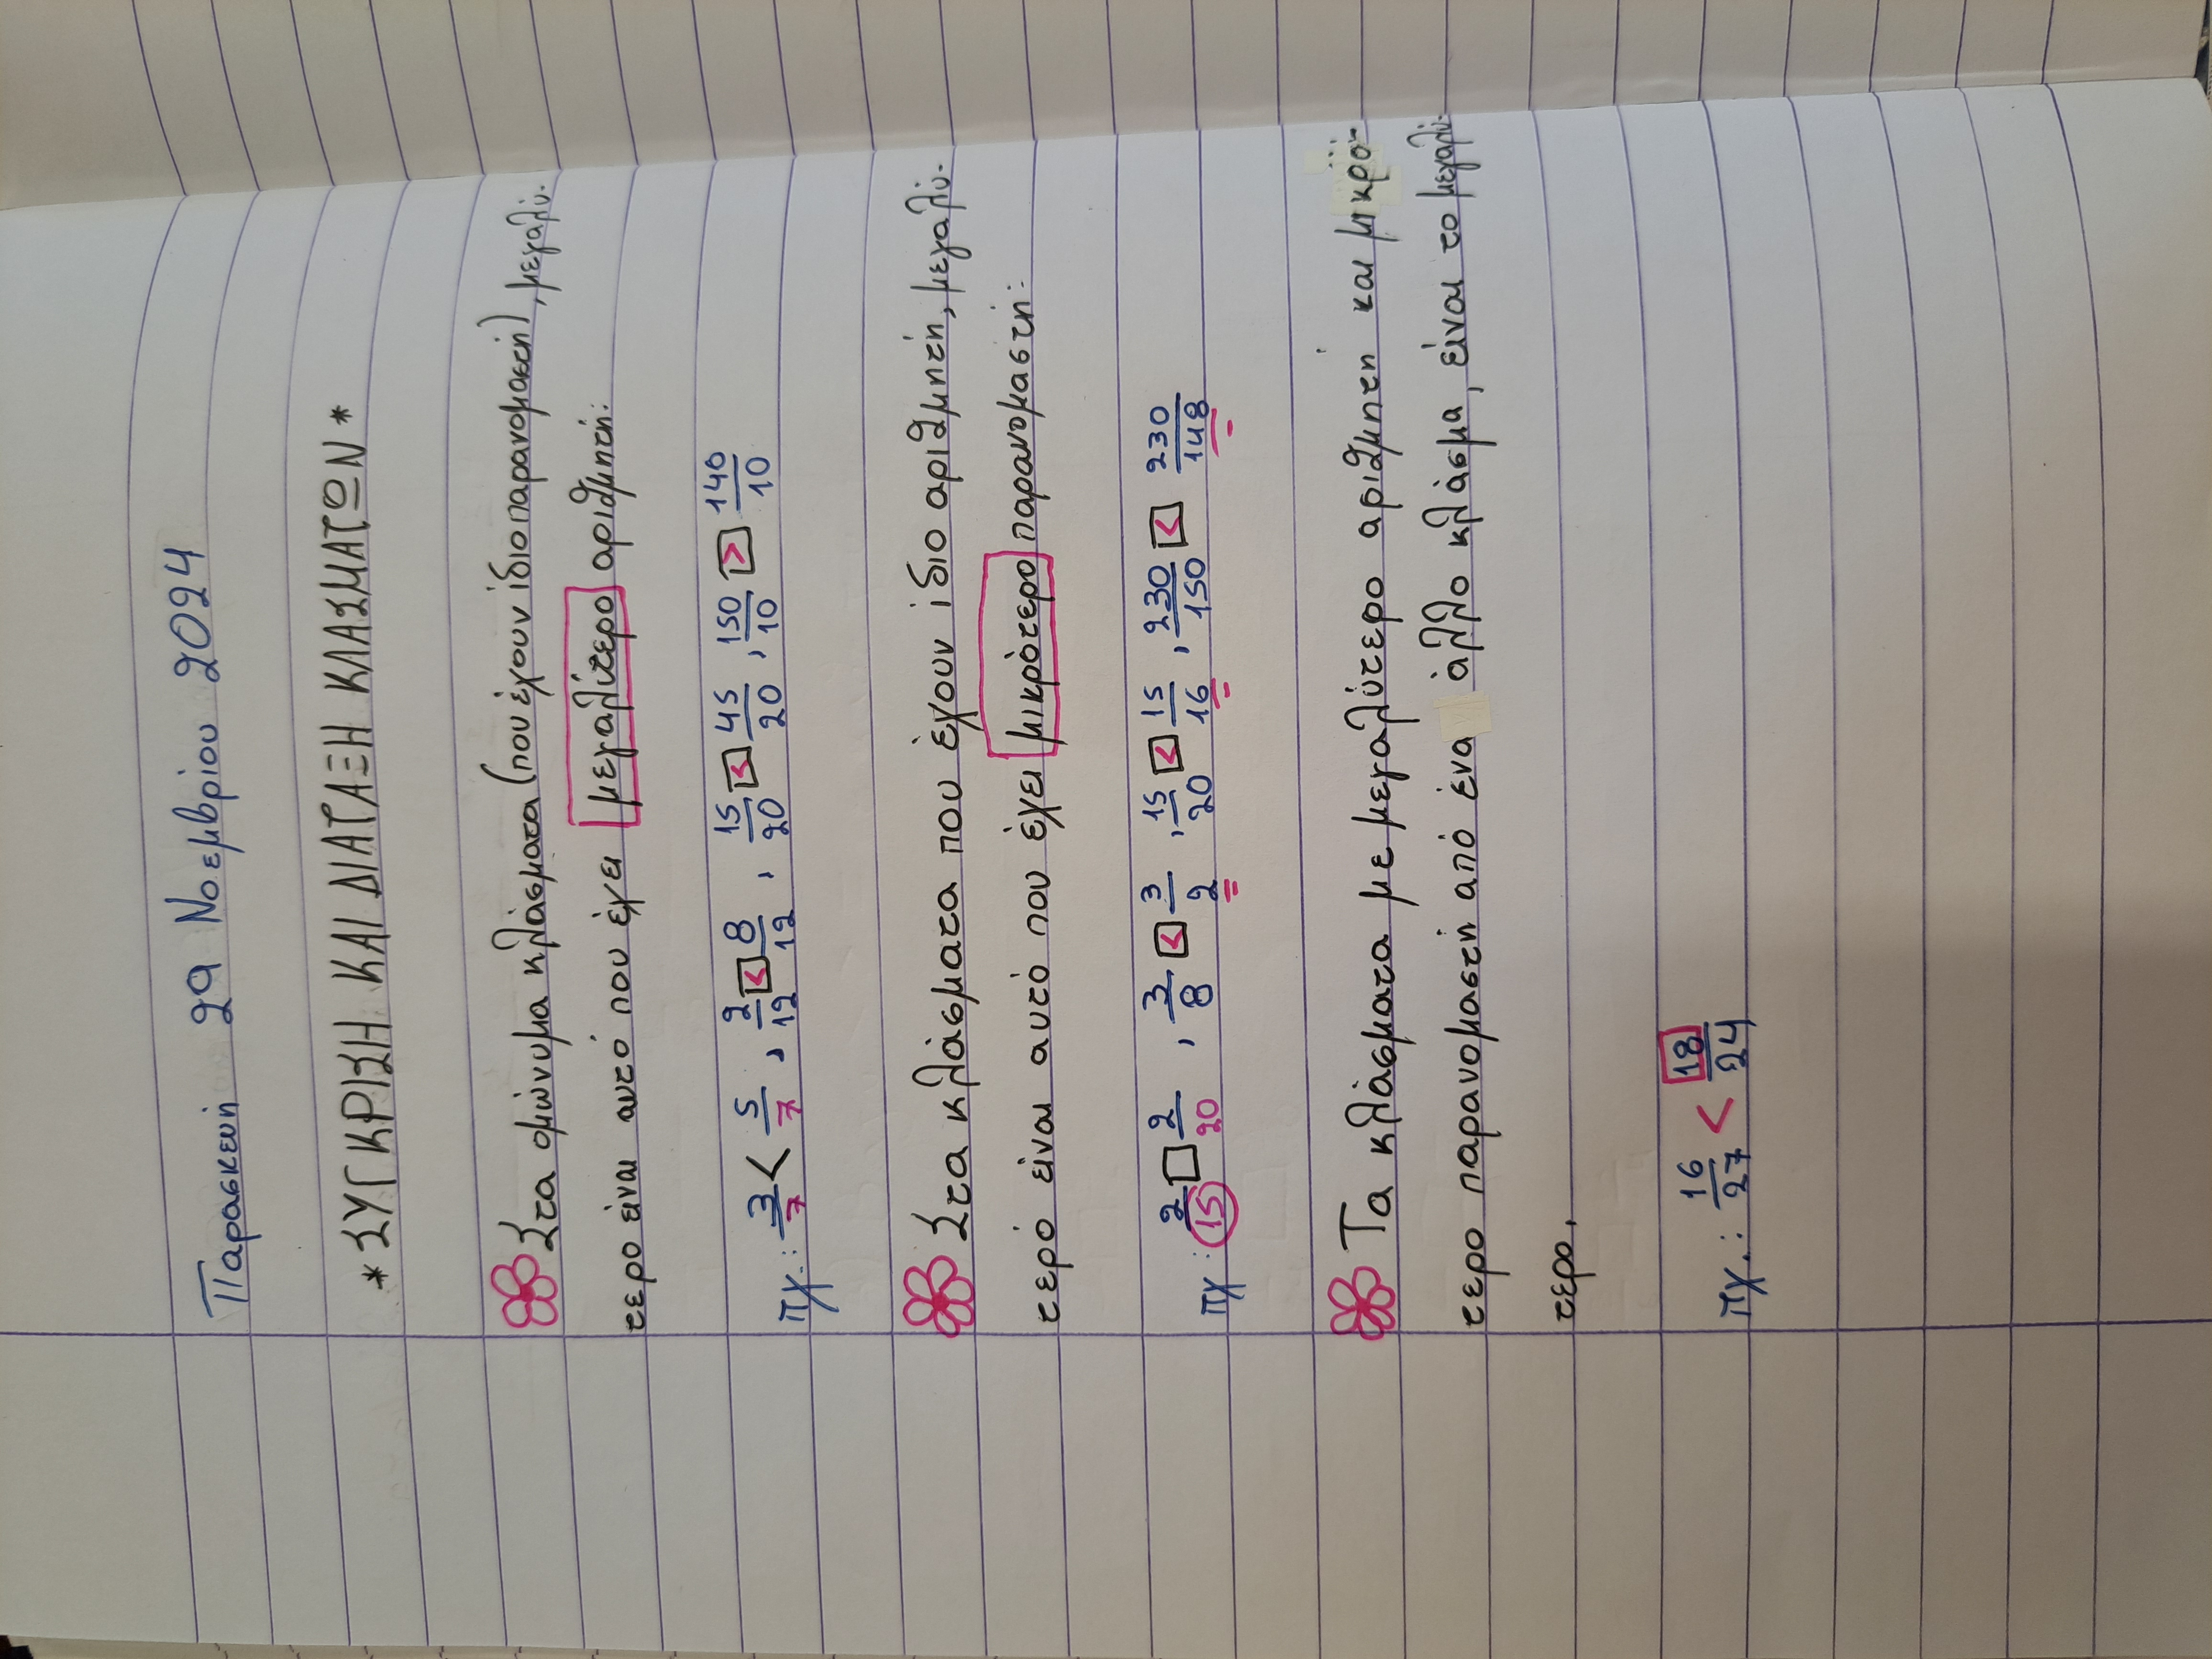 Παρασκευή 29 Νοεμβρίου 2024
* ΣΥΓΚΡΙΣΗ ΚΑΙ ΔΙΑΤΑΞΗ ΚΛΑΣΜΑΤΩΝ *
Στα ομώνυμα κλάσματα (που έχουν ίδιο παρανομαστή), μεγαλύ-
τερο είναι αυτό που έχει μεγαλύτερο αριθμητή:
πχ.: 3/7 < 5/7 , 2/12 < 8/12 , 15/20 < 45/20 , 150/10 > 140/10
Στα κλάσματα που έχουν ίδιο αριθμητή, μεγαλύ-
τερό είναι αυτό που έχει μικρότερο παρανομαστή:
πχ : 2/15 □ 2/20 , 3/8 < 3/2 , 15/20 < 15/16 , 230/150 < 230/148
Τα κλάσματα με μεγαλύτερο αριθμητή και μικρό-
τερο παρανομαστή από ένα άλλο κλάσμα, είναι το μεγαλύ-
τερο.
πχ.: 16/27 < 18/24